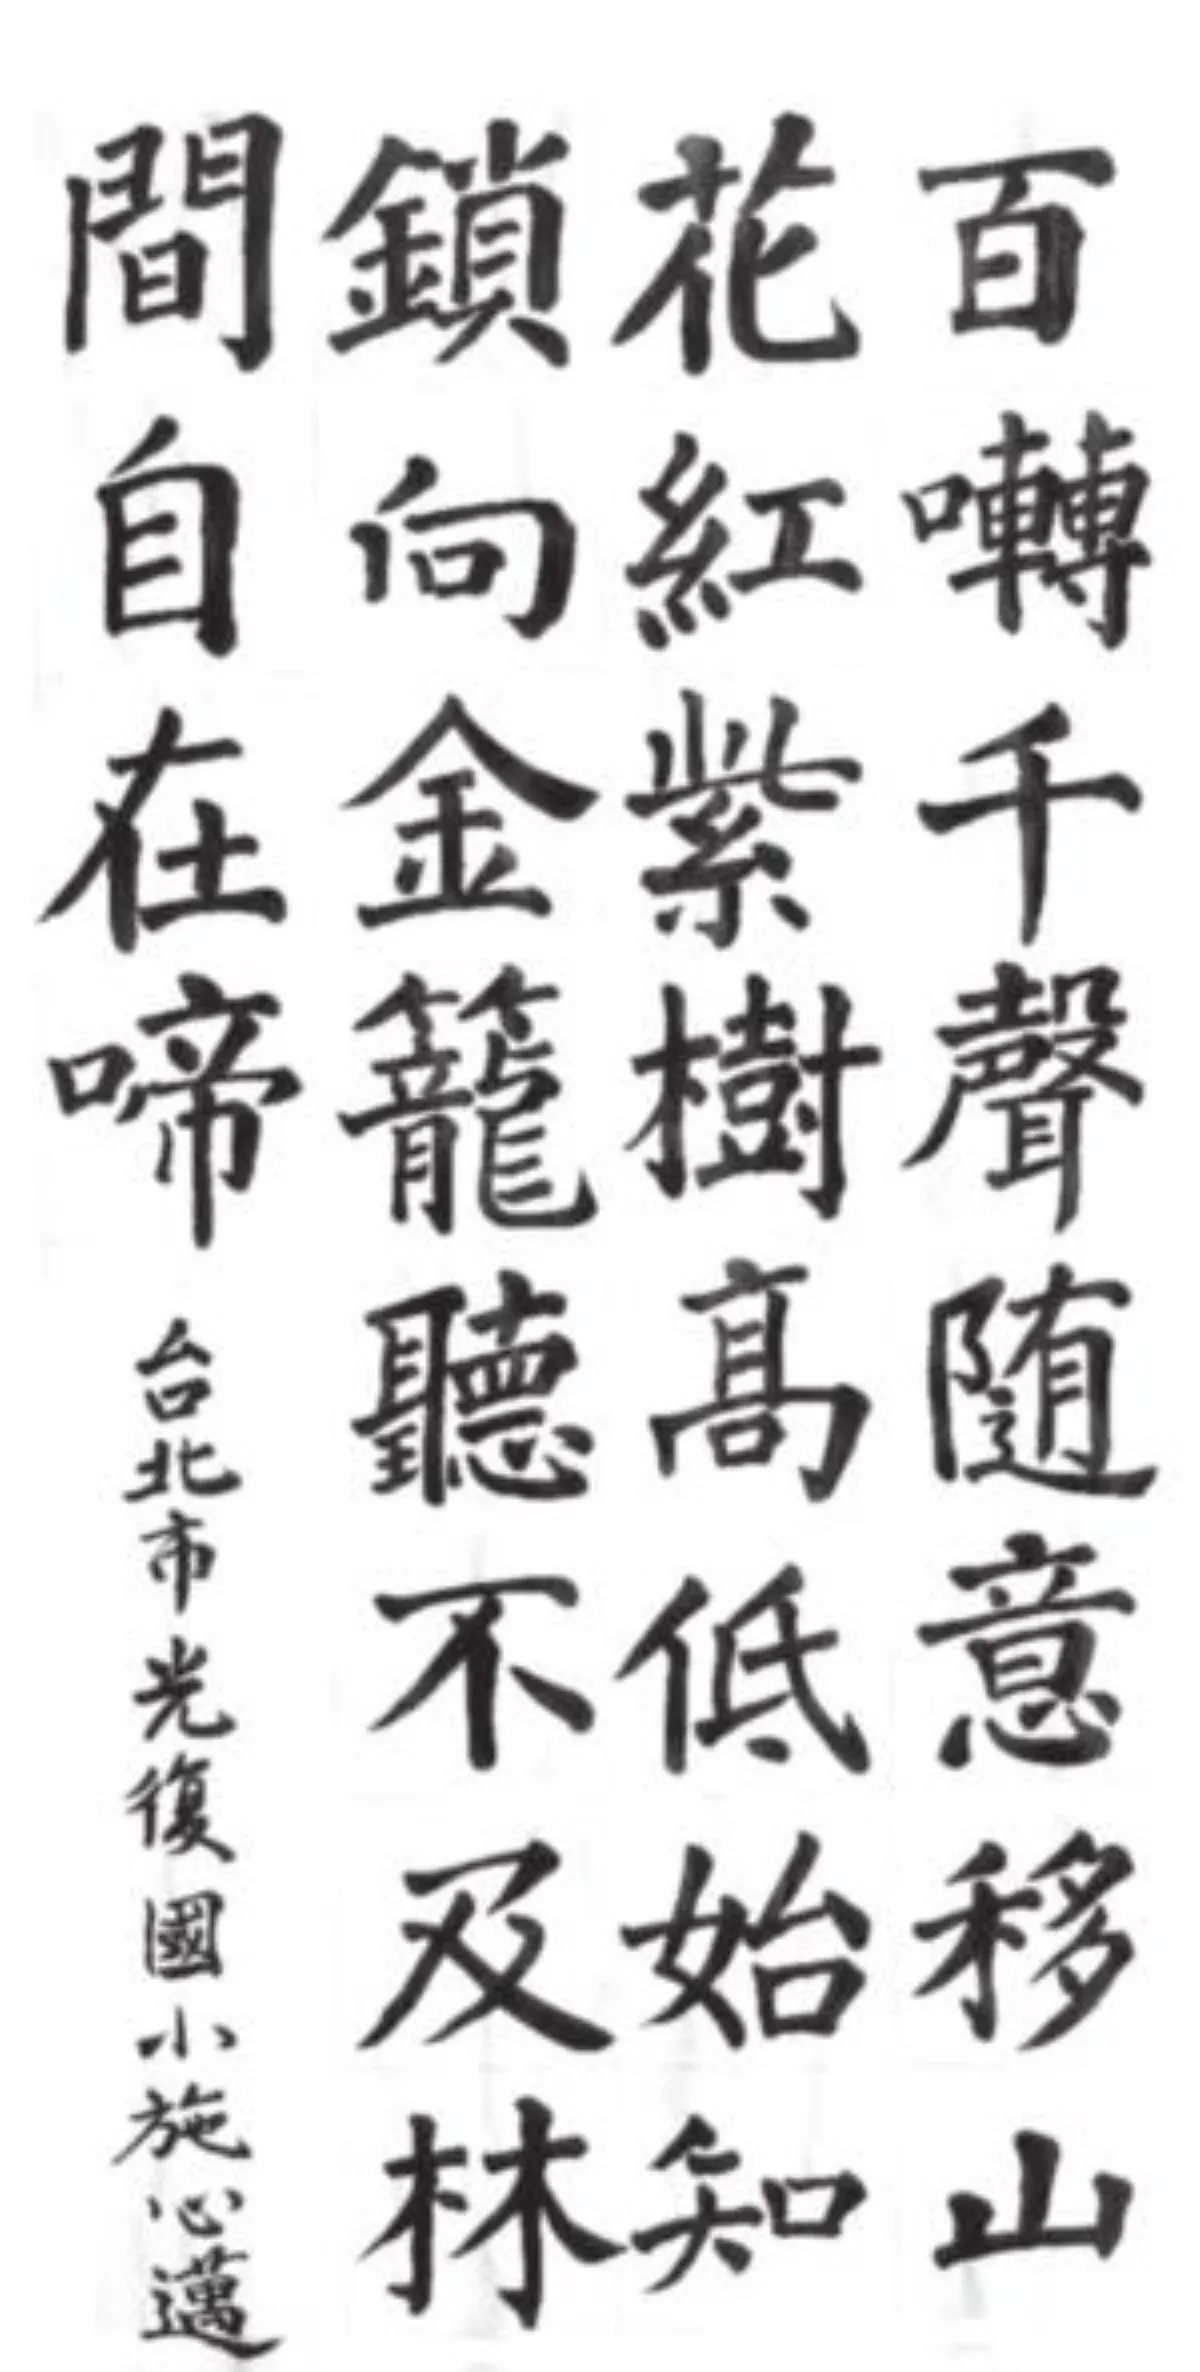 百囀千聲随意移山
花紅紫樹髙低始知
鎖向金籠聽不及林
間自在啼
台北市光復國小施心邁